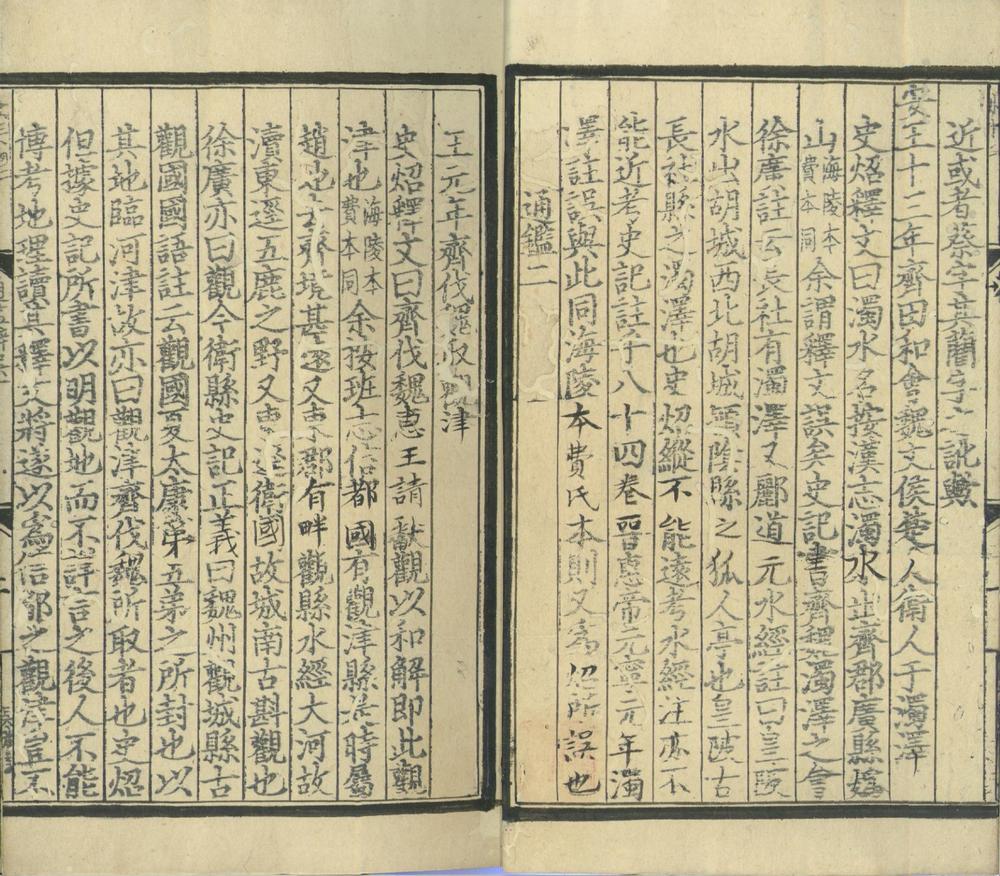 近或者蔡字其藺字之訛歟
安王十三年齊田和會魏文侯楚人衛人于濁澤
史炤釋文曰濁水名按漢志濁水出齊郡廣縣媯
山海陵本費本同余謂釋文誤矣史記書齊魏濁澤之會
徐廣註云長社有濁澤又酈道元水經註曰皇陂
水出胡城西北胡城潁陰縣之狐人亭也皇陂古
長社縣之濁澤也史炤縱不能遠考水經注亦不
能近考史記註乎八十四卷晋惠帝元寧元年濁
澤註誤與此同海陵本費氏本則又為炤所誤也
通鑑二
王元年齊伐魏取觀津
史炤釋文曰齊伐魏惠王請獻觀以和解即此觀
津也海陵本費本同余按班志信都國有觀津縣是時屬
趙也去齊境甚遠又東郡有畔觀縣水經大河故
瀆東逕五鹿之野又東逕衛國故城南古斟觀也
徐廣亦曰觀今衛縣史記正義曰魏州觀城縣古
觀國國語註云觀國夏太康第五弟之所封也以
其地臨河津故亦曰觀津齊伐魏所取者也史炤
但據史記所書以明觀地而不詳言之後人不能
博考地理讀其釋文將遂以為信都之觀津豈不